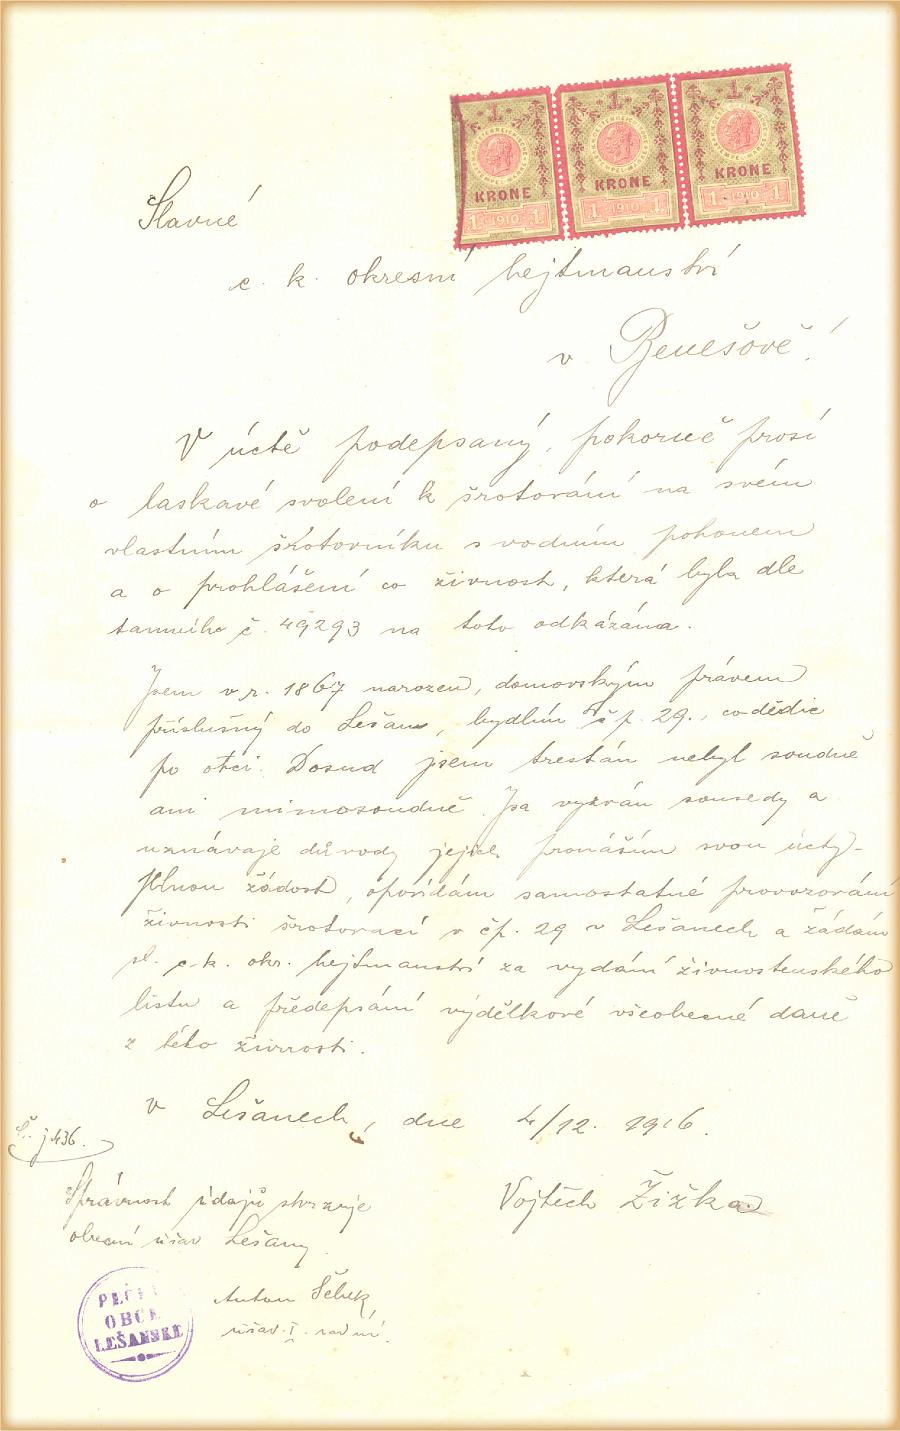 1 KRONE 1 1910 1
1 KRONE 1 1910 1
1 KRONE 1 1910 1
Slavné
c. k. okresní hejtmanství
v Benešově!
V úctě podepsaný, pokorně prosí
o laskavé svolení k šrotování na svém
vlastním šrotovníku s vodním pohonem
a o prohlášení co živnost, která byla dle
tamního č. 49293 na toto odkázána.
Jsem v r. 1867 narozen, domovským právem
příslušný do Lešan, bydlím č p. 29., codědic
po otci. Dosud jsem trestán nebyl soudně
ani mimosoudně. Jsa vyzván sousedy a
uznávaje důvody jejich pronáším svou úcty-
plnou žádost, opovídám samostatné provozování
živnosti šrotovací v čp. 29 v Lešanech a žádám
sl. c. k. okr. hejtmanství za vydání živnostenského
listu a předepsání výdělkové všeobecné daně
z této živnosti.
v Lešanech, dne 4/12. 1916.
Č. j 436.
Správnost údajů stvrzuje
obecní úřad Lešany
Vojtěch Žižka
Anton
I. radní.
OBCE
LEŠANSKÉ